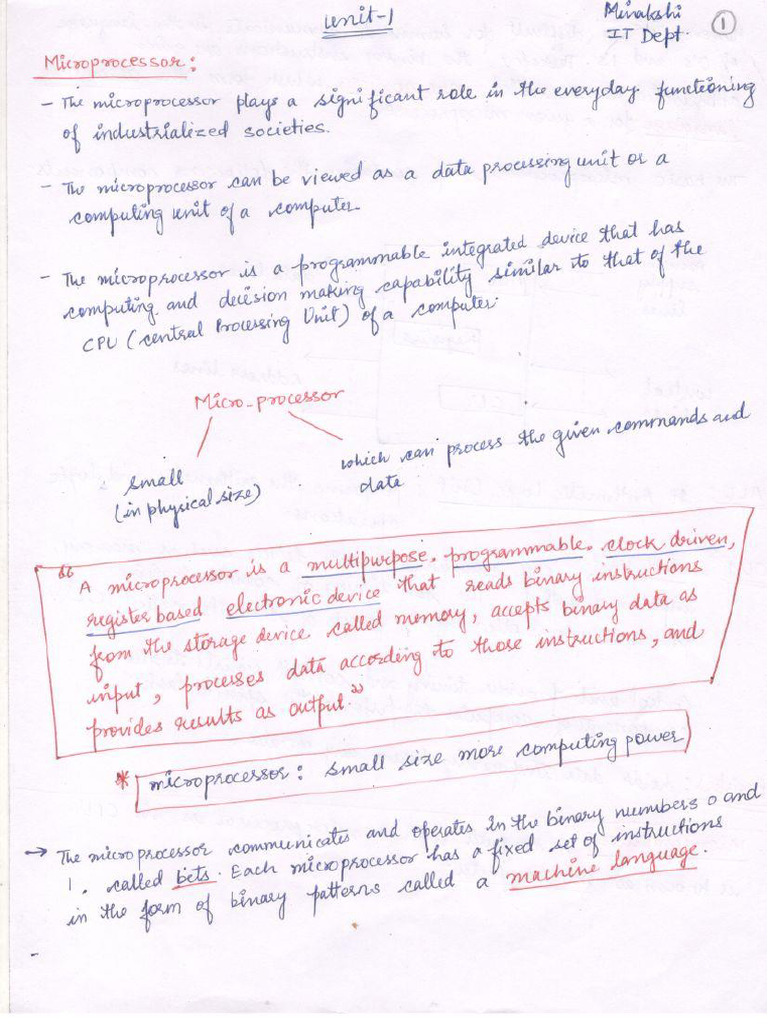 unit-1
Minakshi
IT Dept.
1
Microprocessor:
- The microprocessor plays a significant role in the everyday functioning
of industrialized societies.
- The microprocessor can be viewed as a data processing unit or a
computing unit of a computer.
- The microprocessor is a programmable integrated device that has
computing and decision making capability similar to that of the
CPU (central Processing Unit) of a computer.
Micro-processor
small
(in physical size)
which can process the given commands and
data
"A microprocessor is a multipurpose, programmable, clock driven,
register based electronic device that reads binary instructions
from the storage device called memory, accepts binary data as
input, processes data according to those instructions, and
provides results as output."
* microprocessor: small size more computing power
→ The microprocessor communicates and operates in the binary numbers 0 and
1, called bits. Each microprocessor has a fixed set of instructions
in the form of binary patterns called a machine language.